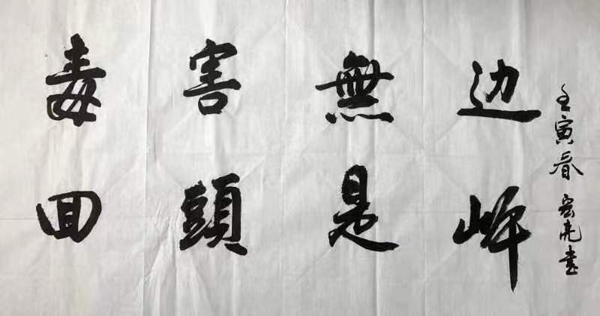 毒害無边
回頭是岸
壬寅春 宏亮书